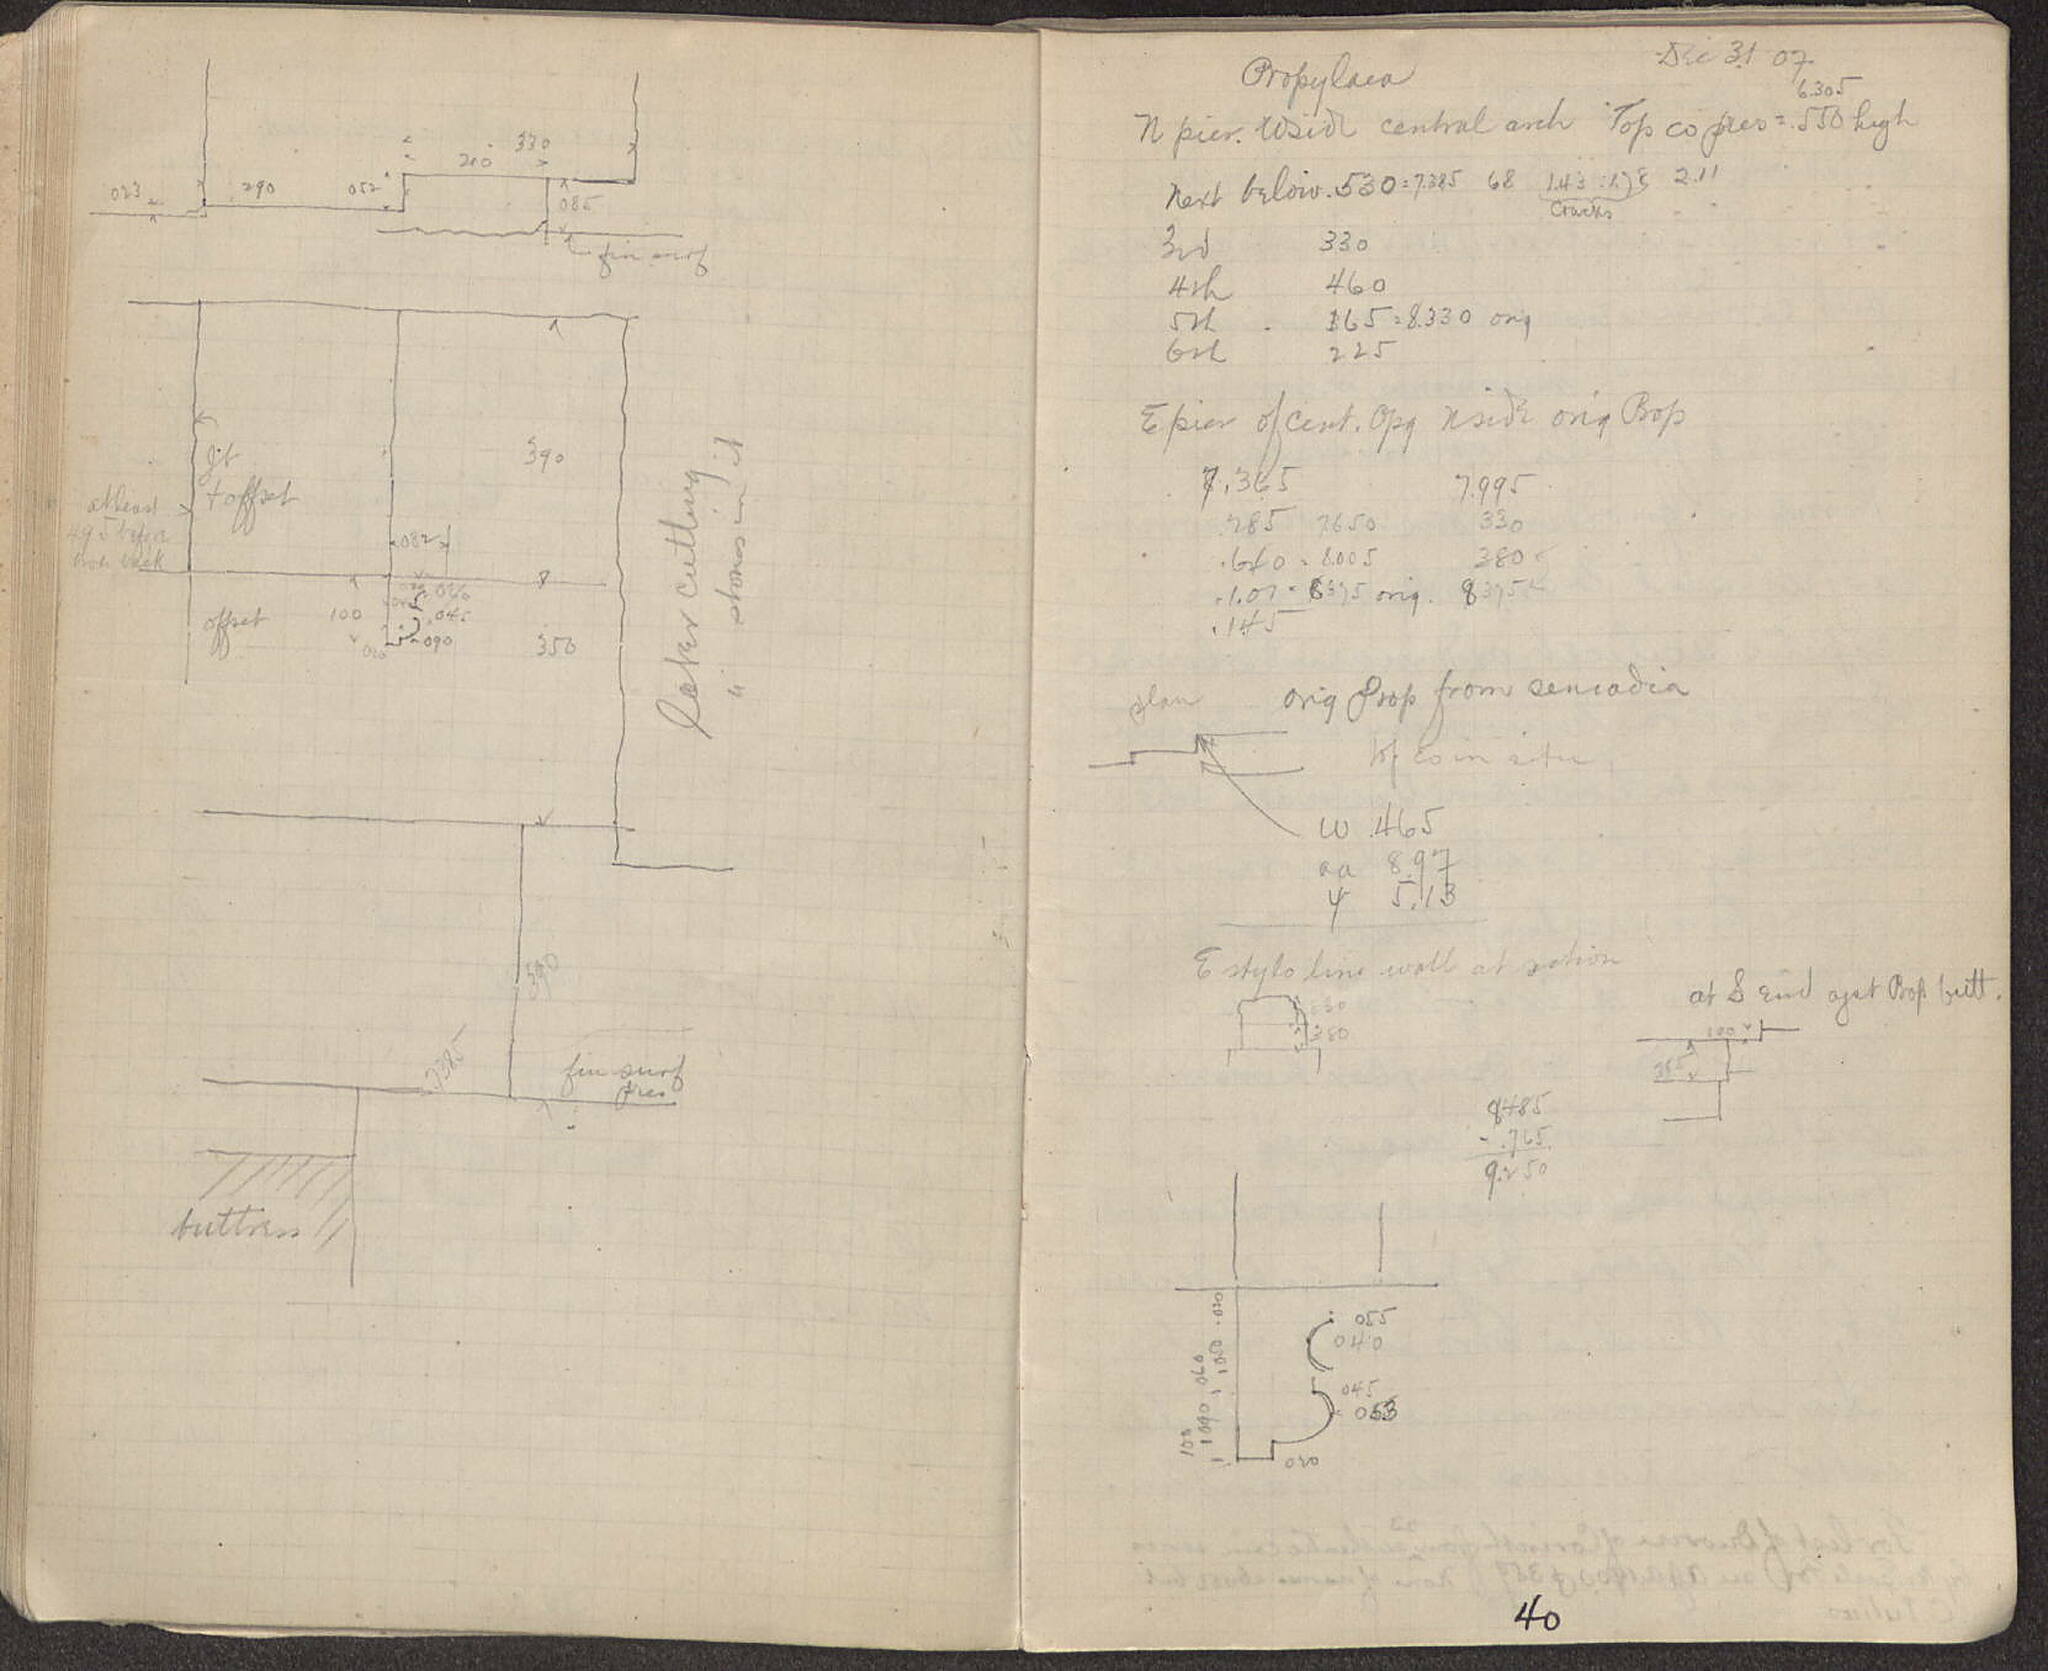 330
210
023
290
052
085
fin surf
jt
+ offset
390
at least
495 before
082
offset
100
.045
.090
350
Later cutting
" stones in it
390
.7385
fin surf
pres
buttress
Dec 31 07
Propylaea
6.305
N pier. W side central arch Top co pres = .550 high
Next below .530 = 7.385 68 1.43 2.11
cracks
3rd 330
4th 460
5th 165 = 8.330 orig
6th 225
E pier of cent. Opg N side orig Prop
7.365 7.995
.285 7.650 330
.640 = 8.005 380
.1.07 = 8375 orig. 8375
.145
plan orig Prop from
Top co in situ
ω .465
aa 8.97
ψ 5.13
E stylo line wall at
330
380
at S End agst Prop butt.
100
355
8485
- .765
9.250
055
040
045
053
020
100 090 060 050 .020
40